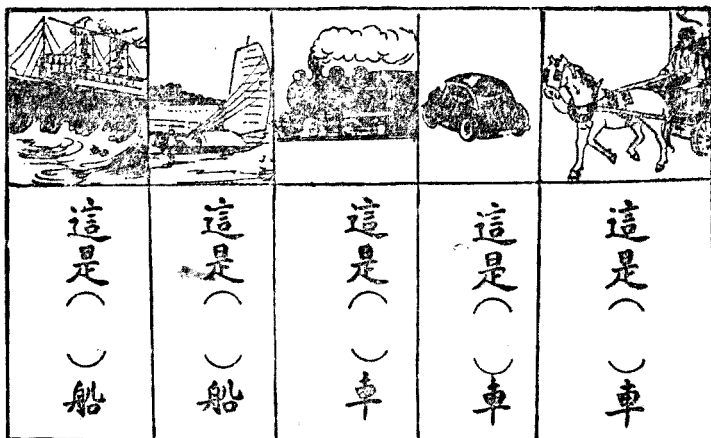 這是（　）車
這是（　）車
這是（　）車
這是（　）船
這是（　）船